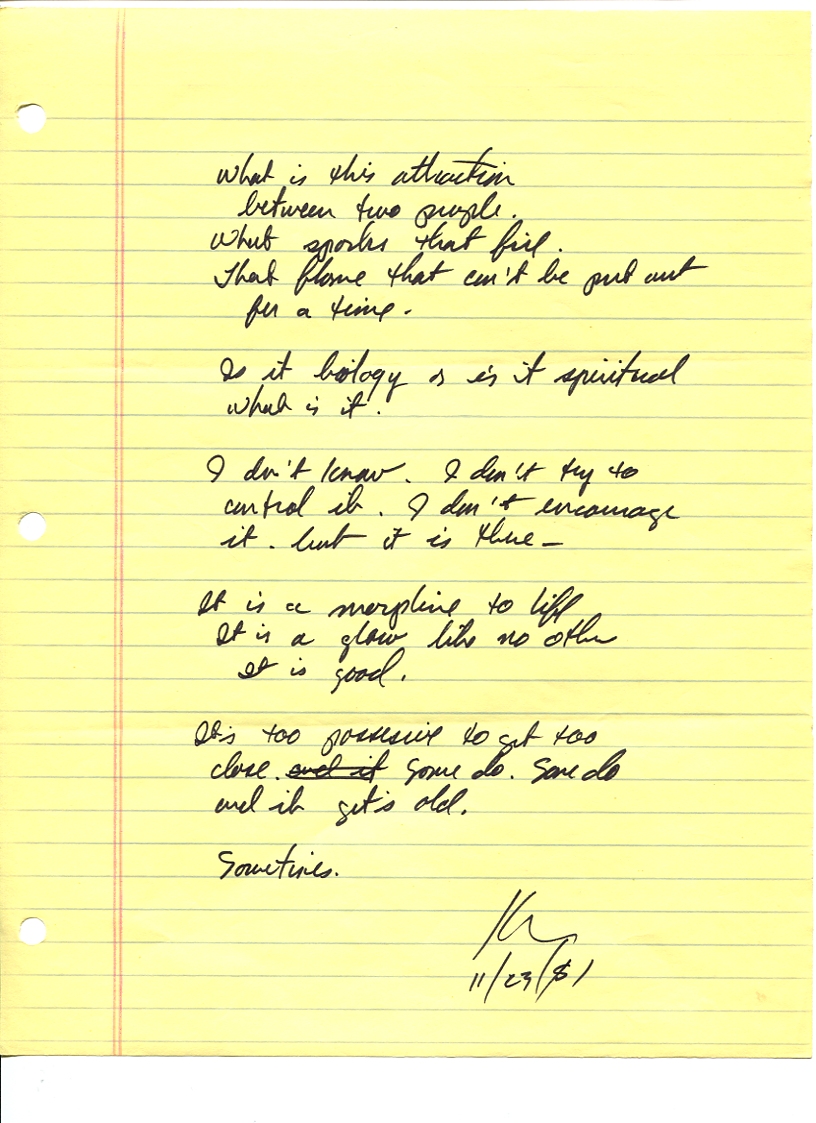 What is this attraction
between two people.
What sparks that fire.
That flame that can't be put out
for a time.
Is it biology or is it spiritual
what is it.
I don't know. I don't try to
control it. I don't encourage
it. but it is there —
It is a morphine to life
It is a glow like no other
It is good.
It's too possessive to get too
close. and it Some do. Some do
and it get's old.
Sometimes.
11/23/81